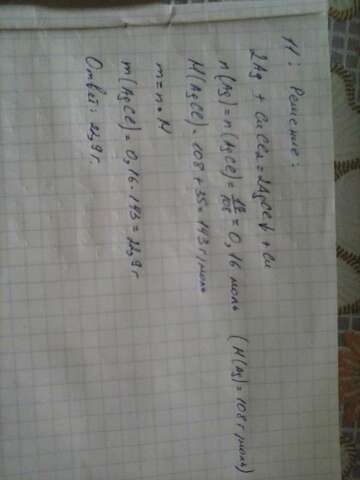 11: Решение:
2Ag + CuCl2 = 2AgCl↓ + Cu
n(Ag) = n(AgCl) = 17/108 = 0,16 моль (M(Ag) = 108 г/моль)
M(AgCl) = 108 + 35 = 143 г/моль
m = n • M
m(AgCl) = 0,16 • 143 = 22,9 г
Ответ: 22,9 г.